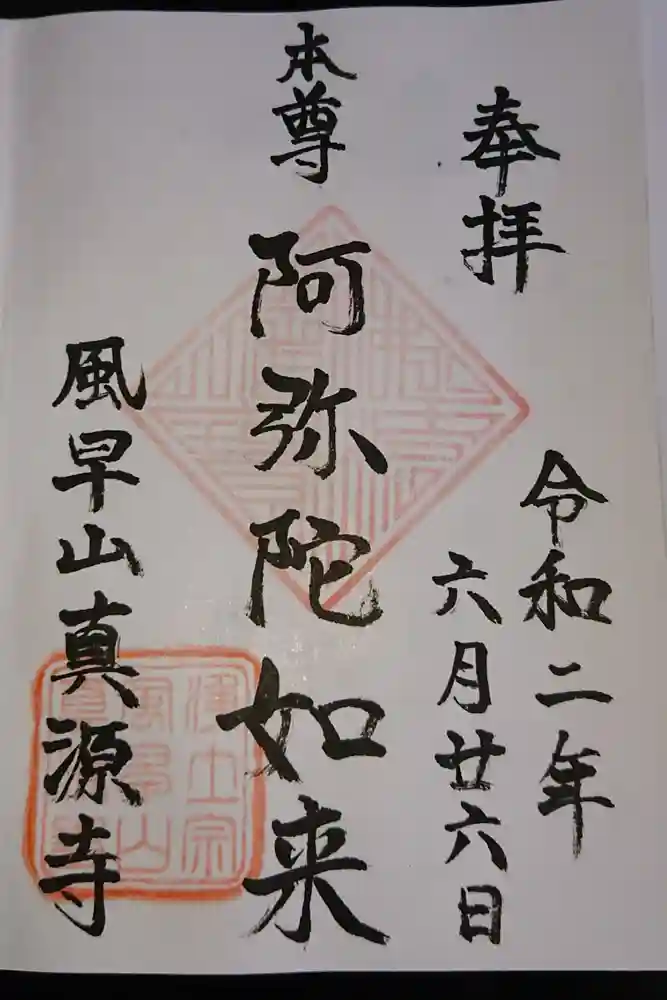 奉拝
令和二年
六月廿六日
本尊
阿弥陀如来
風早山真源寺
浄土宗
風早山